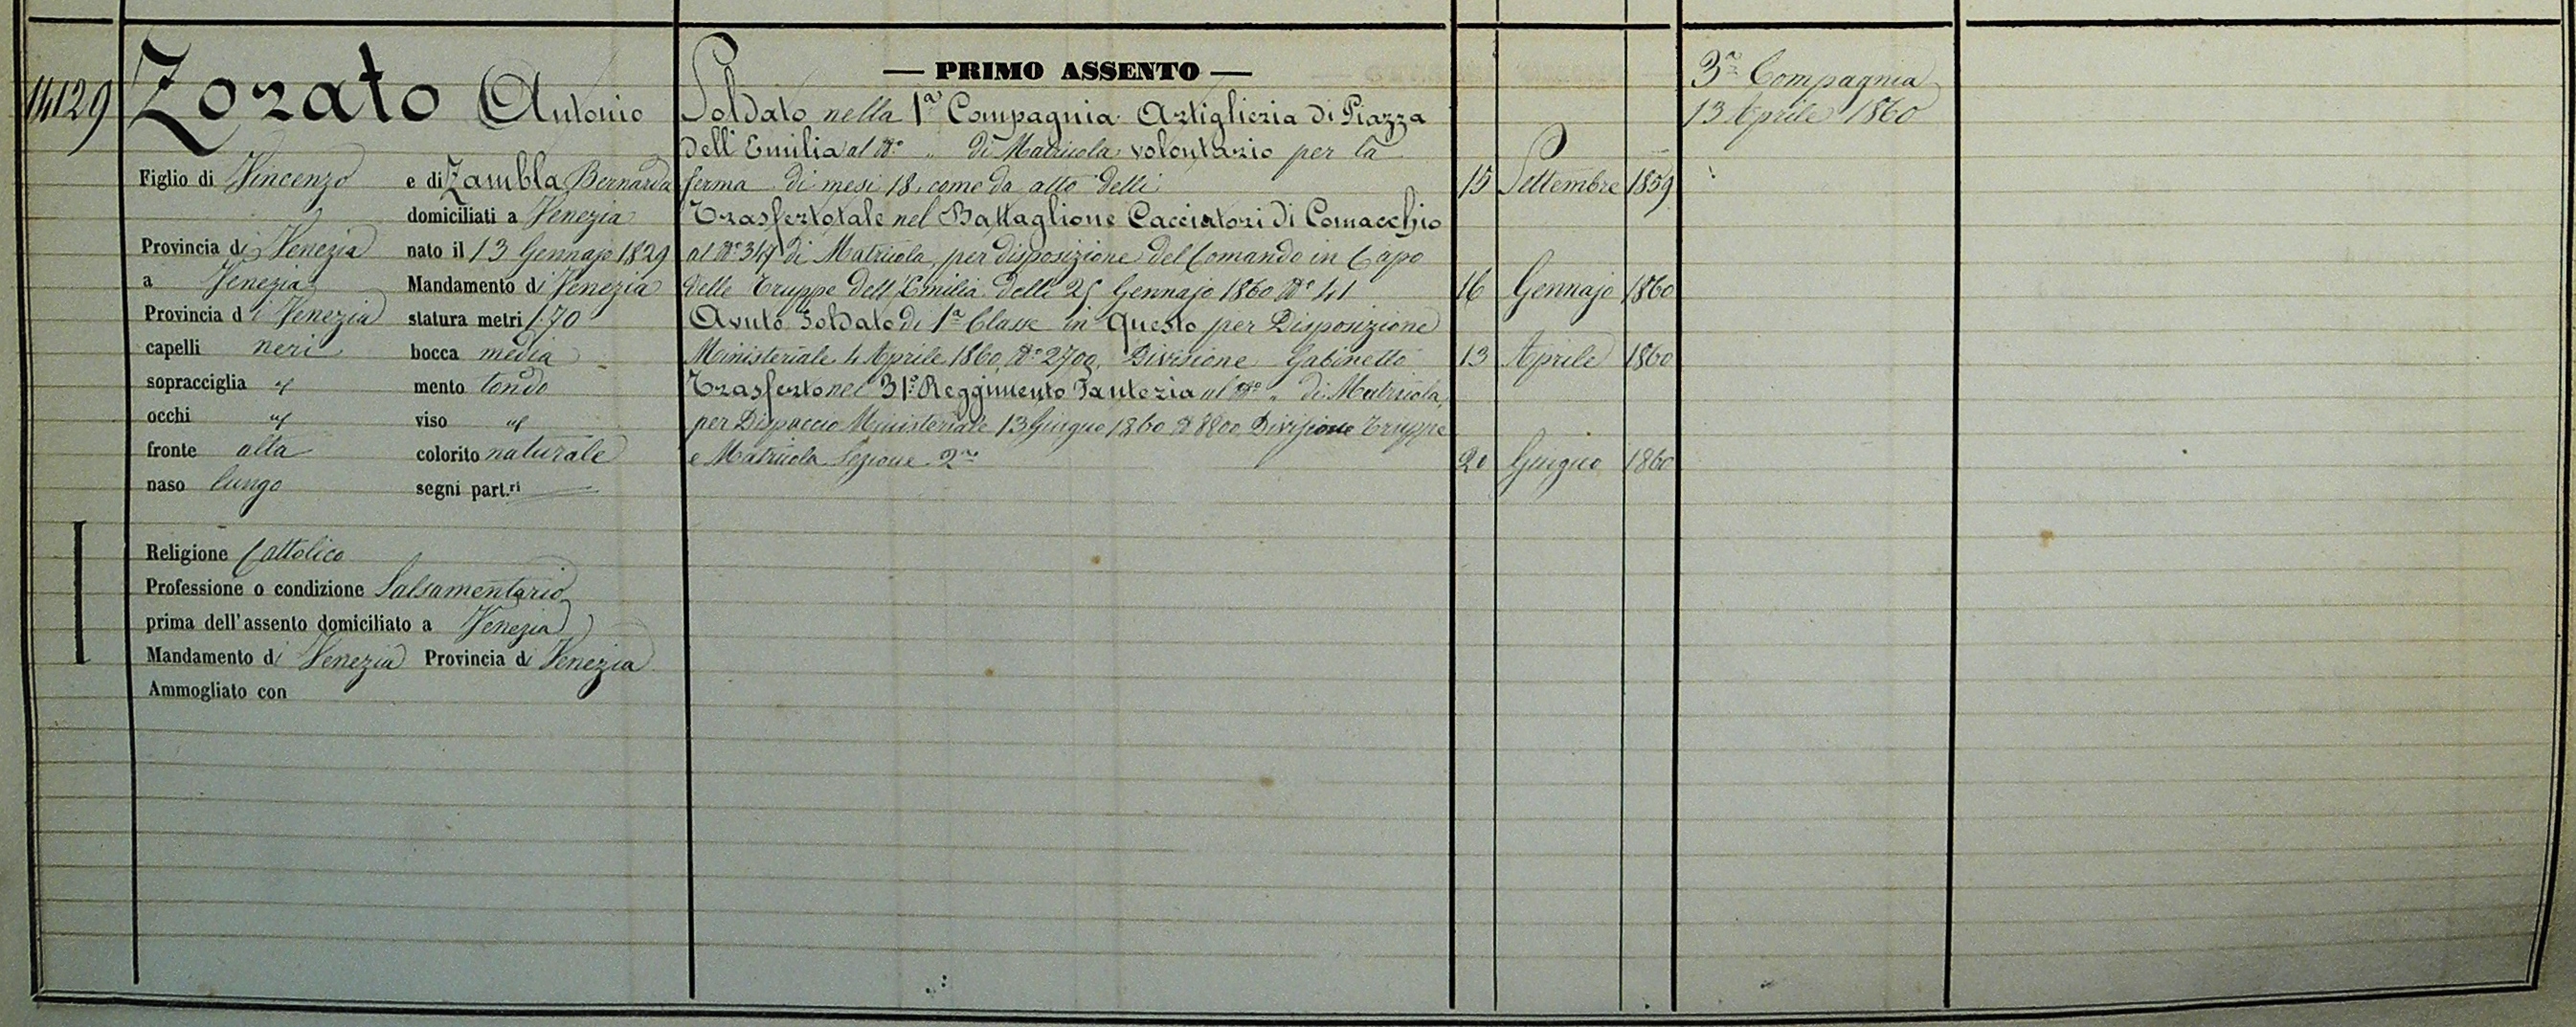 14129
Zorato Antonio
Figlio di Vincenzo e di Zambla Bernarda
domiciliati a Venezia
Provincia di Venezia nato il 13 Gennajo 1829
a Venezia Mandamento di Venezia
Provincia di Venezia statura metri 1:70
capelli neri bocca media
sopracciglia " mento tondo
occhi " viso "
fronte alta colorito naturale
naso lungo segni part.ri
Religione Cattolico
Professione o condizione Salsamentario
prima dell'assento domiciliato a Venezia
Mandamento di Venezia Provincia di Venezia
Ammogliato con
— PRIMO ASSENTO —
Soldato nella 1a Compagnia Artiglieria di Piazza
dell'Emilia al No " di Matricola volontario per la
ferma di mesi 18, come da atto delli 15 Settembre 1859
Trasferto tale nel Battaglione Cacciatori di Comacchio
al No 347 di Matricola, per disposizione del Comando in Capo
delle Truppe dell'Emilia delli 25 Gennajo 1860 No 41 16 Gennajo 1860
Avuto Soldato di 1a Classe in Questo per Disposizione
Ministeriale 4 Aprile 1860, No 2700, Divisione Gabinetto 13 Aprile 1860
Trasferto nel 31o Reggimento Fanteria al No " di Matricola,
per Dispaccio Ministeriale 13 Giugno 1860 No 8800, Divisione Truppe
e Matricola Sezione 2a 20 Giugno 1860
3a Compagnia
13 Aprile 1860